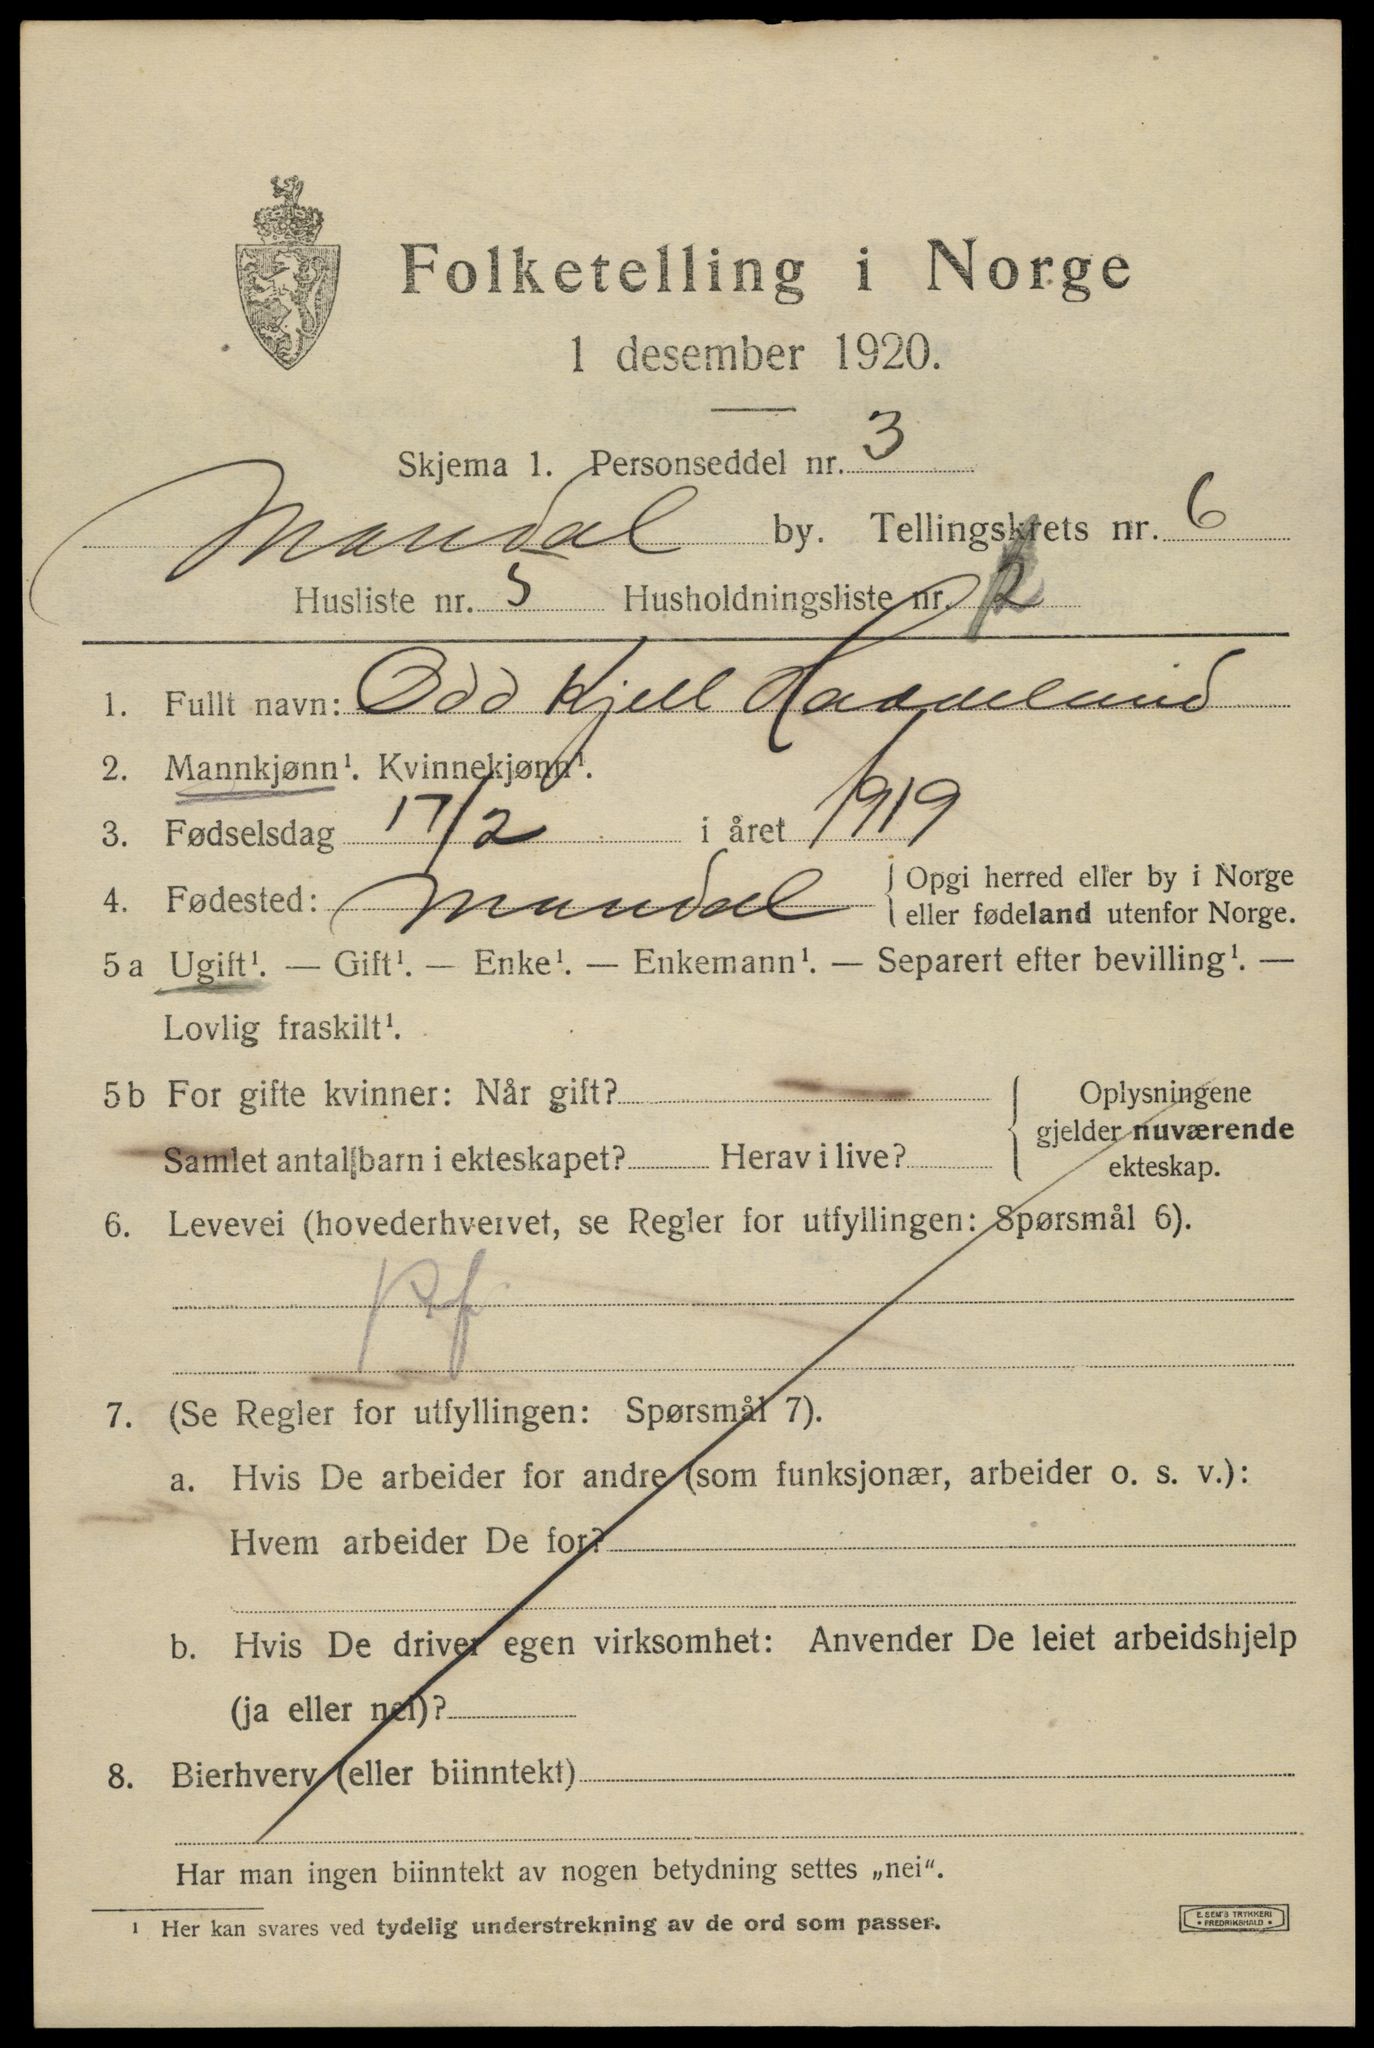 Folketelling i Norge
1 desember 1920.
Skjema 1. Personseddel nr. 3
Mandal by. Tellingskrets nr. 6
Husliste nr. 5 Husholdningsliste nr. 2
1. Fullt navn: Odd Kjell Haddeland
2. Mannkjønn¹. Kvinnekjønn¹.
3. Fødselsdag 17/2 i året 1919
4. Fødested: Mandal { Opgi herred eller by i Norge
eller fødeland utenfor Norge.
5a Ugift¹. — Gift¹. — Enke¹. — Enkemann¹. — Separert efter bevilling¹. —
Lovlig fraskilt¹.
5b For gifte kvinner: Når gift? { Oplysningene
gjelder nuværende
Samlet antal barn i ekteskapet? Herav i live?
ekteskap.
6. Levevei (hovederhvervet, se Regler for utfyllingen: Spørsmål 6).
7. (Se Regler for utfyllingen: Spørsmål 7).
a. Hvis De arbeider for andre (som funksjonær, arbeider o. s. v.):
Hvem arbeider De for?
b. Hvis De driver egen virksomhet: Anvender De leiet arbeidshjelp
(ja eller nei)?
8. Bierhverv (eller biinntekt)
Har man ingen biinntekt av nogen betydning settes „nei“.
¹ Her kan svares ved tydelig understrekning av de ord som passer.
E. SEM'S TRYKKERI
• FREDRIKSHALD •